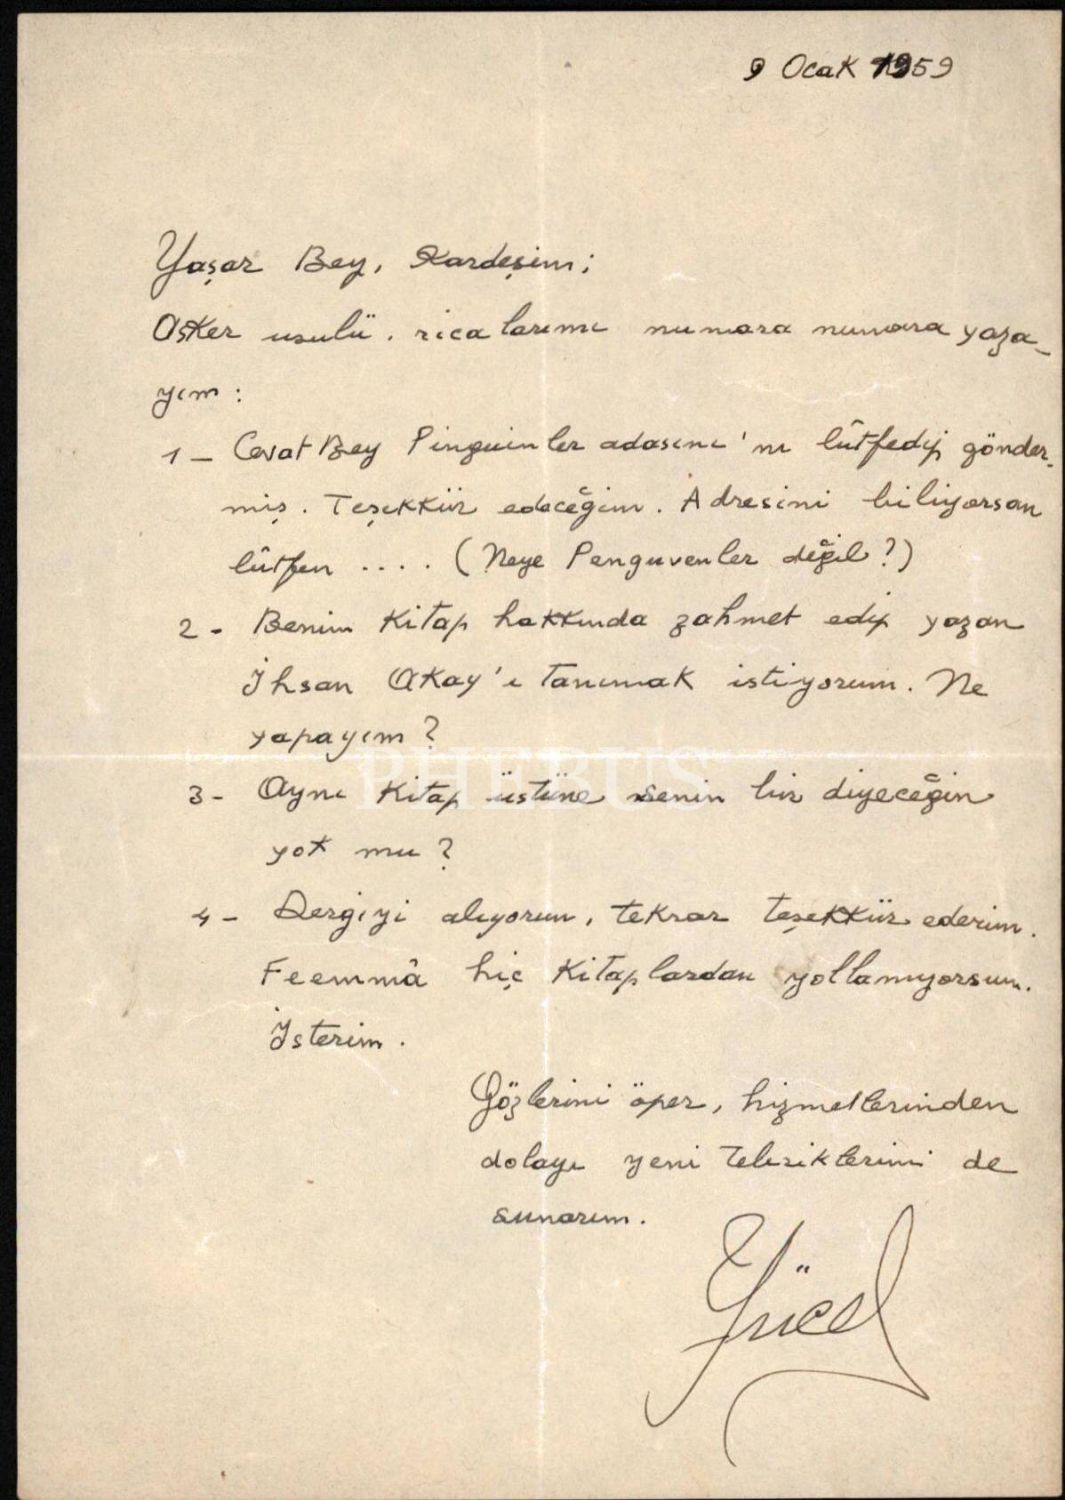 9 Ocak 1959
Yaşar Bey, Kardeşim;
Asker usulü, ricalarımı numara numara yaza-
yım :
1 - Cevat Bey Pinguinler adasını'nı lûtfedip gönder-
miş. Teşekkür edeceğim. Adresini biliyorsan
lûtfen .... (Neye Penguvenler değil?)
2 - Benim Kitap hakkında zahmet edip yazan
İhsan Akay'ı tanımak istiyorum. Ne
yapayım?
PHEBUS
3 - Aynı Kitap üstüne senin bir diyeceğin
yok mu?
4 - Dergiyi alıyorum, tekrar teşekkür ederim.
Feemmâ hiç Kitaplardan yollamıyorsun.
İsterim.
Gözlerini öper, hizmetlerinden
dolayı yeni tebriklerimi de
sunarım.
Yücel